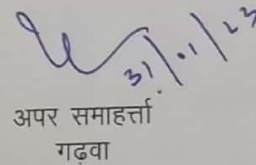 31/01/23
अपर समाहर्त्ता
गढ़वा